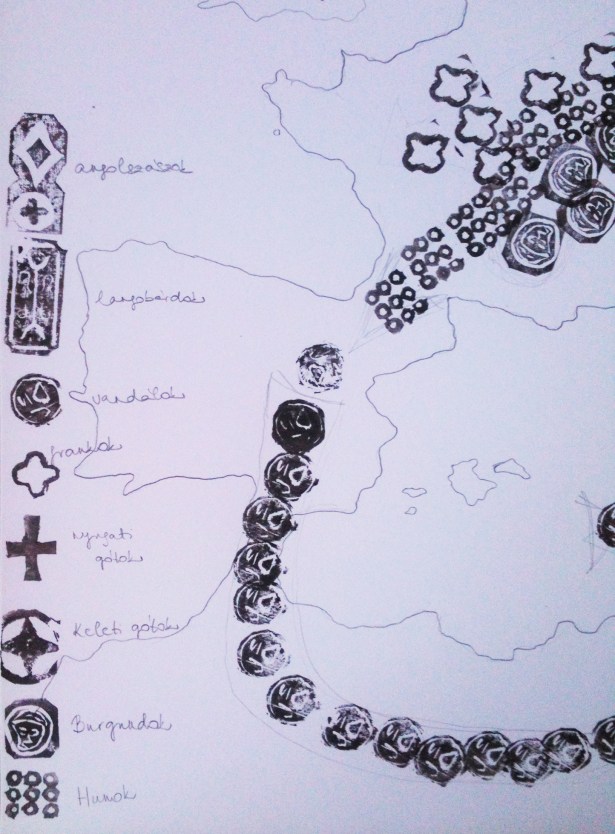 angolszászok
langobárdok
vandálok
frankok
nyugati
gótok
Keleti gótok
Burgundok
Hunok